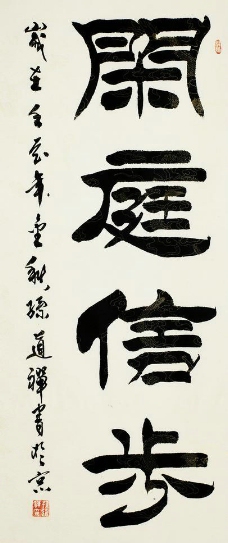 閑庭信步
歲在壬午年金秋孫道禪書於京